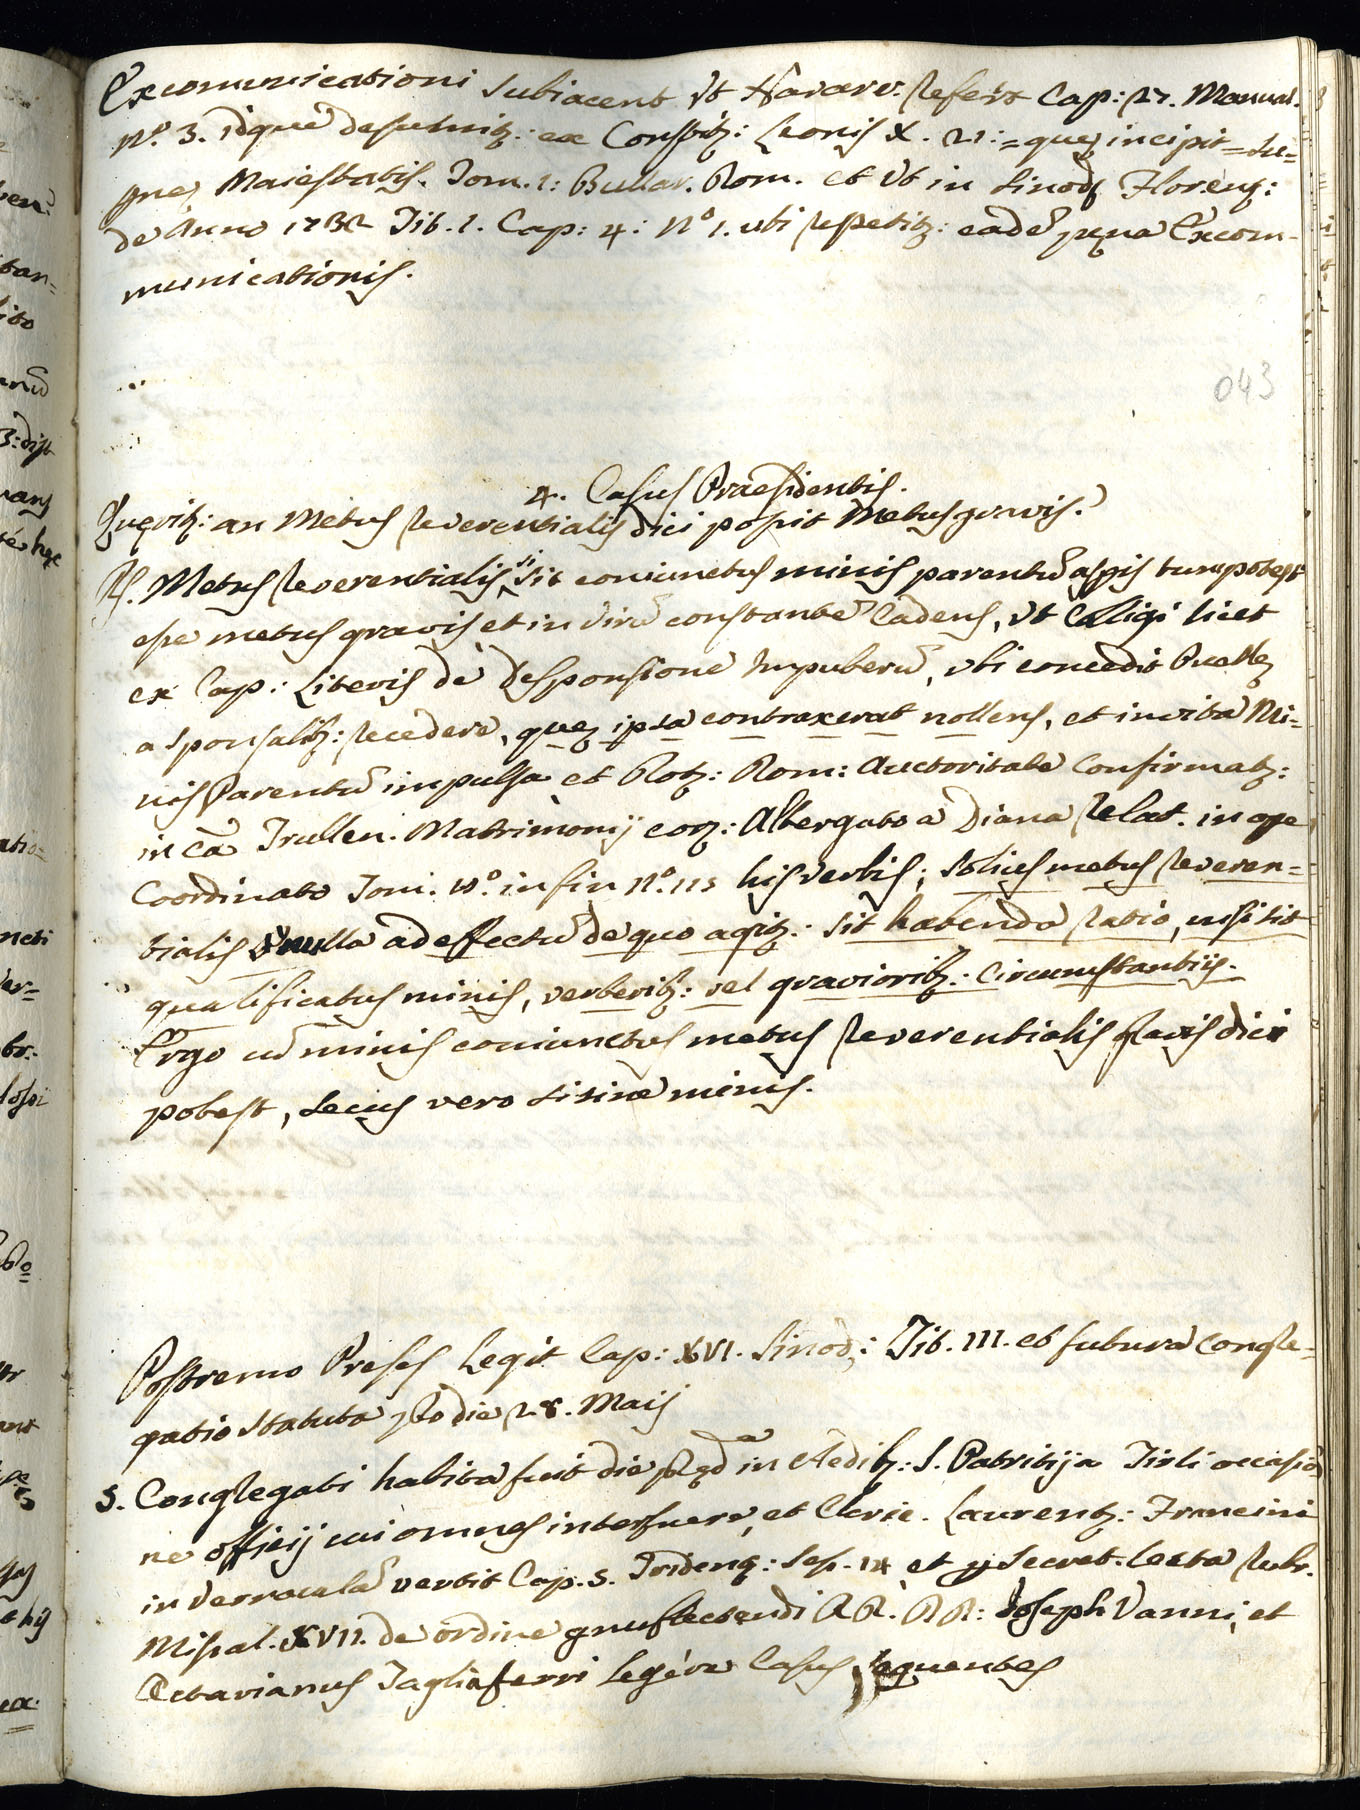 Excomunicationi subiacent Vt Navarr: refert Cap: 27. Manual.
Nº. 3. idquè desumitz: ex Constitz: Leonis X. 21:= quę incipit = Su=
prnę Maiestatis. Tom. 1: Bullar. Rom. et Vt in Sinodį Florenz:
de Anno 1732 Tit. 1. Cap: 4: Nº 1. ubi repetitz: eadē pęna Excom-
municationis.
043
4. Casus Praesidentis.
Quęritz: an Metus reverentialis dici possit Metus gravis?
Rs. Metus reverentialis si sit coniunctus minis parentū aspis tum potest
esse metus gravis et in virū constantē Cadens, Vt Colligi licet
ex Cap: Literis de Desponsione Impuberū, Vbi concedit Puellę
a sponsalibz: recedere, quę ipsa contraxerat nollens, et invita Mi=
nis Parentū impulsa et Rotz: Rom: Auctoritate Confirmatz:
in Cā Trullen. Matrimonij corz: Albergato a Diana relat. in ope
Coordinato Tom. 10º. in fin Nº. 115 his verbis; Solius metus reveren=
tialis nulla ad effectū de quo agitz: sit habenda ratio, nisi sit
qualificatus minis, verberibz: vel gravioribz: Circumstantiis.
Ergo cū minis coniunctus metus reverentialis gravis dici
potest, secus vero si sine minis.
Postremo Preses Legit Cap: XVI. Sinod: Tit. III. et futura Congre=
gatio Statuta pro die 28. Maij
5. Congregati habita fuit die in Aedibz: S. Patritij a Tirli occasio
ne officij cui omnes interfuere, et Cleric. Laurentz: Francini
in vernaculā vertit Cap. 5. Tridenz: Ses. 14 et p Secret. lecta rubr.
Missal. XVII. de ordine gnuflectendi RR. RR: Joseph Vanni, et
Octavianus Tagliaferri legére Casus sequentes